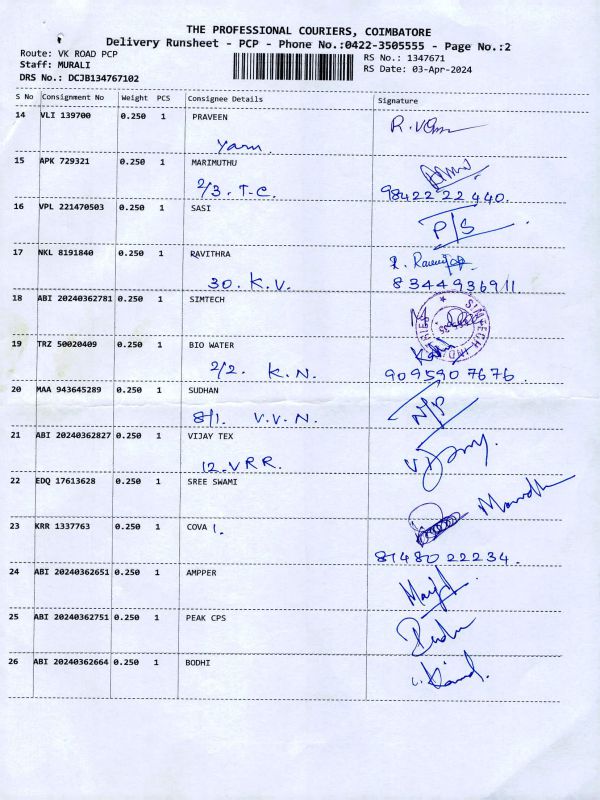 THE PROFESSIONAL COURIERS, COIMBATORE
Delivery Runsheet - PCP - Phone No.:0422-3505555 - Page No.:2
Route: VK ROAD PCP
Staff: MURALI
DRS No.: DCJB134767102
RS No.: 1347671
RS Date: 03-Apr-2024
S No Consignment No Weight PCS Consignee Details Signature
14 VLI 139700 0.250 1 PRAVEEN
Yarn.
15 APK 729321 0.250 1 MARIMUTHU
2/3. T-C. 98422 22 440.
16 VPL 221470503 0.250 1 SASI P/S
17 NKL 8191840 0.250 1 RAVITHRA
30. K.V. 8344936911
18 ABI 20240362781 0.250 1 SIMTECH
19 TRZ 50020409 0.250 1 BIO WATER
2/2. K.N. 9095907676.
20 MAA 943645289 0.250 1 SUDHAN N/P
8/1. V.V.N.
21 ABI 20240362827 0.250 1 VIJAY TEX
12-VRR.
22 EDQ 17613628 0.250 1 SREE SWAMI
23 KRR 1337763 0.250 1 COVA 1.
81480 22234.
24 ABI 20240362651 0.250 1 AMPPER
25 ABI 20240362751 0.250 1 PEAK CPS
26 ABI 20240362664 0.250 1 BODHI